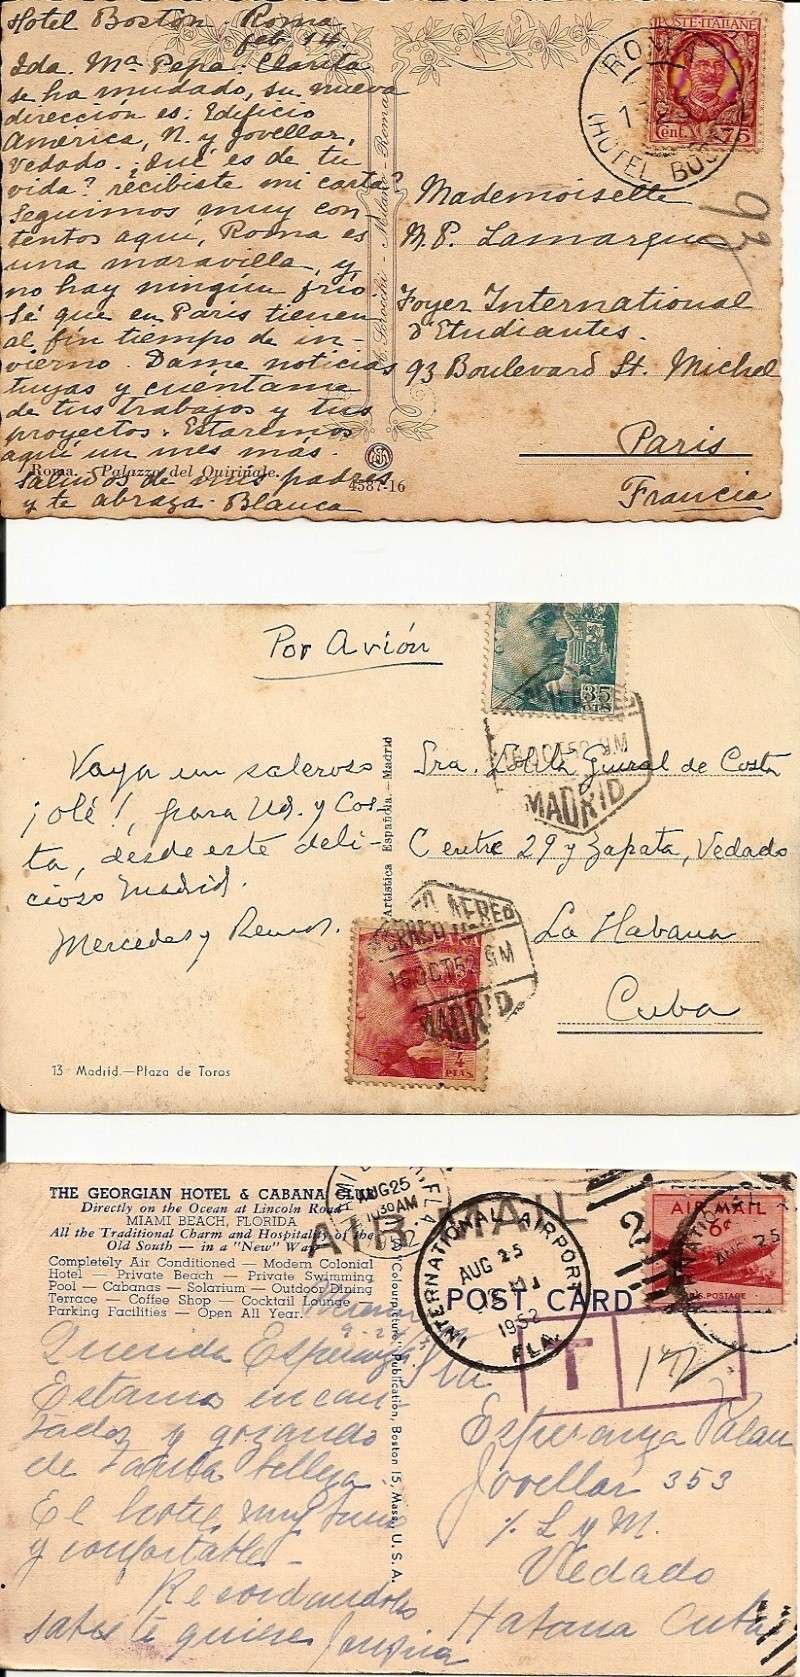 Hotel Boston Roma
feb 14.
Ida. Mª Pepa: Clarita
se ha mudado, su nueva
dirección es: Edificio
América, N. y Jovellar,
Vedado. ¿Qué es de tu
vida? recibiste mi carta?
Seguimos muy con-
tentos aquí, Roma es
una maravilla, y
no hay ningún frío
Sé que en París tienen
al fin tiempo de in-
vierno. Dame noticias
tuyas y cuéntame
de tus trabajos y tus
proyectos. Estaremos
aquí un mes más.
Saludos de mis padres
y te abraza Blanca
Roma. Palazzo del Quirinale.
4587-16
Milano - Roma
POSTE ITALIANE
Cent. 75
ROMA
(HOTEL BOS
93
Mademoiselle
M.P. Lamarque
Foyer International
d'Etudiantes.
93 Boulevard St. Michel
Paris
Francia
Por Avión
35
CTS
16 OCT 52 9M
MADRID
Vaya un saleroso
¡olé!, para Ud. y Cos-
ta, desde este deli-
cioso Madrid.
Mercedes y
Artística Española.-Madrid
Sra. Lolita Guiral de Costa
Centre 29 y Zapata, Vedado
La Habana
Cuba
CORREO AEREO
16 OCT 52 9M
MADRID
4
PTAS
13 Madrid.—Plaza de Toros
THE GEORGIAN HOTEL & CABANA CLUB
Directly on the Ocean at Lincoln Road
MIAMI BEACH, FLORIDA
All the Traditional Charm and Hospitality of the
Old South — in a "New" Way
Completely Air Conditioned — Modern Colonial
Hotel — Private Beach — Private Swimming
Pool — Cabanas — Solarium — Outdoor Dining
Terrace — Coffee Shop — Cocktail Lounge
Parking Facilities — Open All Year.
AUG 25
10 30 AM
FLA.
AIR MAIL
INTERNATIONAL AIRPORT
AUG 25
1952
FLA.
POST CARD
AIR MAIL
6¢
U.S. POSTAGE
AUG 25
T
Publication, Boston 15, Mass., U. S. A.
Querida Esperanza
Estamos encan-
tados y gozando
de tanta belleza
El hotel muy fino
y confortable -
Recordandolos
sabes te quiere
Esperanza Palau
Jovellar 353
% L y M.
Vedado
Habana Cuba